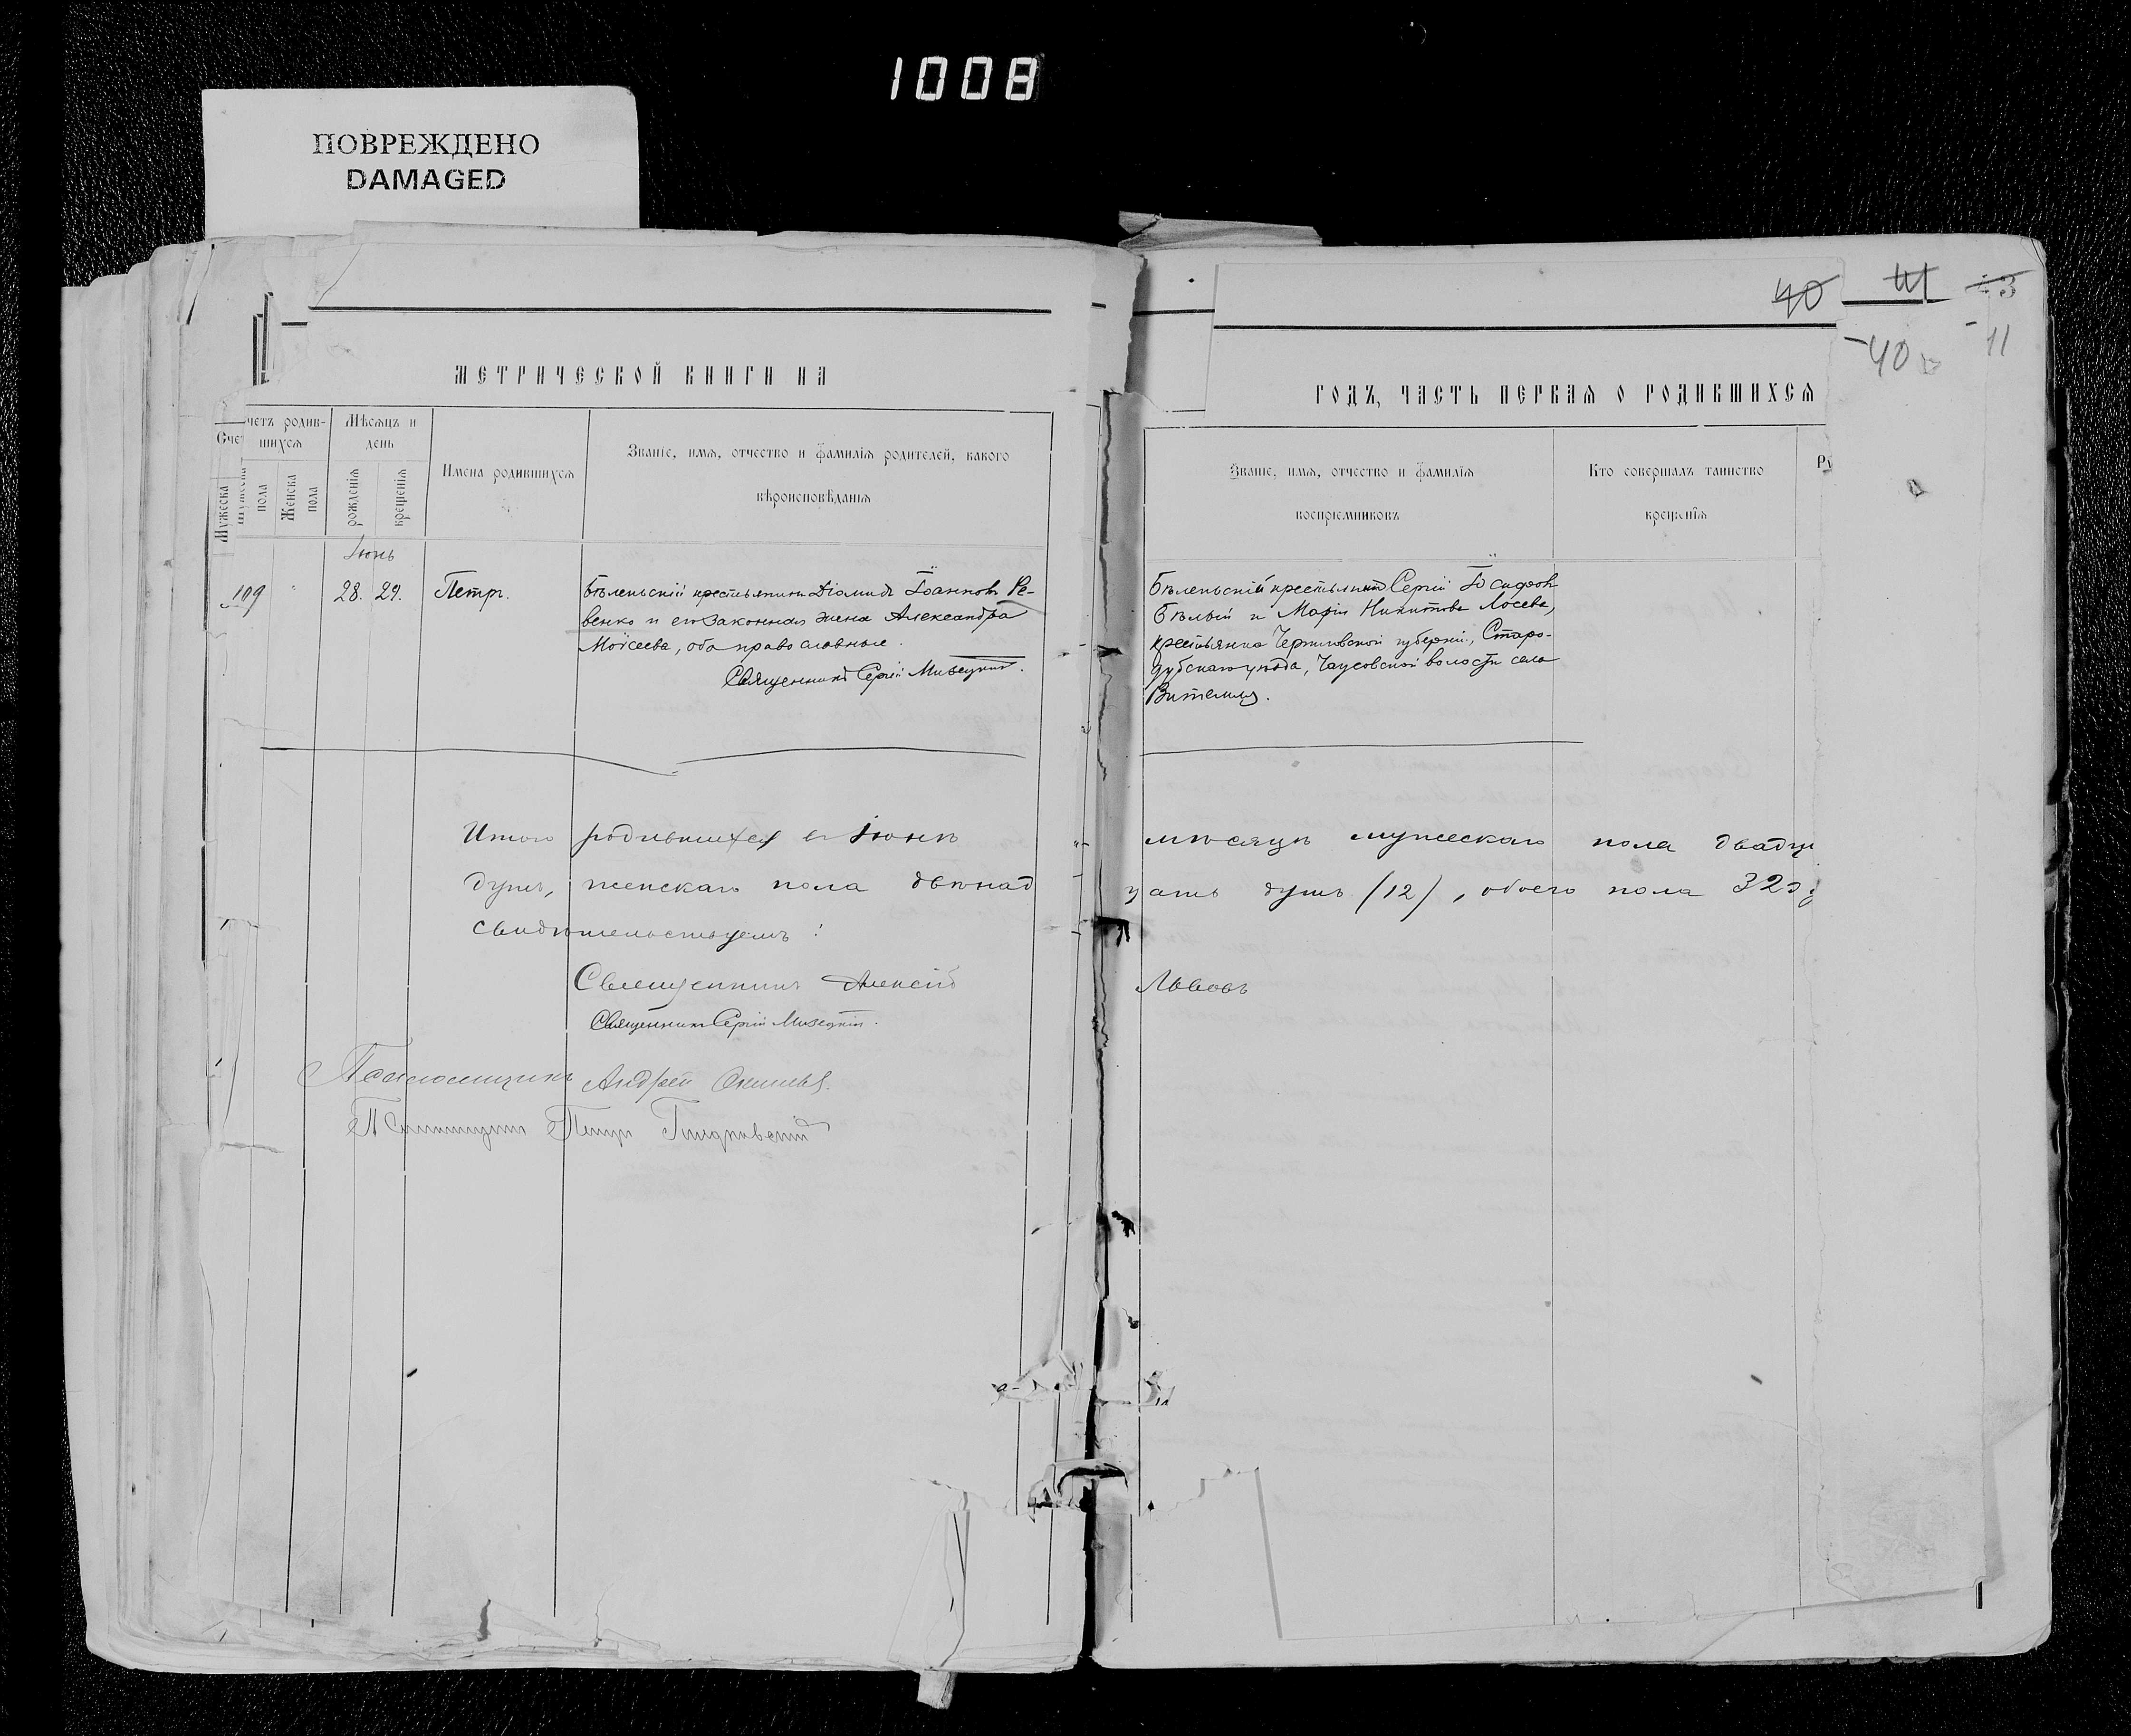 1008
ПОВРЕЖДЕНО
DAMAGED
40 41 3
40 11
МЕТРИЧЕСКОЙ КНИГИ НА
ГОДЪ, ЧАСТЬ ПЕРВАЯ О РОДИВШИХСЯ
Счетъ родив-
шихся
Мужеска пола
Женска пола
Мѣсяцъ и
день
рожденія
крещенія
Имена родившихся
Званіе, имя, отчество и фамилія родителей, какого
вѣроисповѣданія
Званіе, имя, отчество и фамилія
воспріемниковъ
Кто совершалъ таинство
крещенія
Іюнь
109 " 28. 29. Петръ.
Бѣленьскій крестьянинъ Діомидъ Іоанновъ Ре-
венко и его законная жена Александра
Моисеева, оба православные.
Священникъ Сергій
Бѣленьскій крестьянинъ Сергій Іосифовъ
Бѣлый и Марія Никитова Лосева,
крестьянка Черниговской губерніи, Старо-
дубскаго уѣзда, волости села
Витемля.
Итого родившихся въ Іюнѣ мѣсяцѣ мужескаго пола двадца
душъ, женскаго пола двѣнад цать душъ (12), обоего пола 32 д
свидѣтельствуемъ:
Священникъ Алексій Львовъ
Священникъ Сергій
Псаломщикъ Андрей
Псаломщикъ Петръ